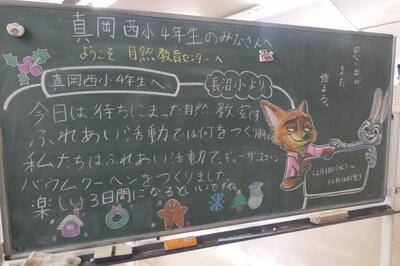 真岡西小4年生のみなさんへ
ようこそ 自然教育センターへ
真岡西小4年生へ
長沼小より
今日は、待ちにまった自然教室です
ふれあい活動では何をつくりますか
私たちはふれあい活動で、ギョーザ、スコーン
バウムクーヘンをつくりました。
楽しい3日間になるといいですね
思い出が
また、
始まる。
12月10日(火)～
12月12日(木)